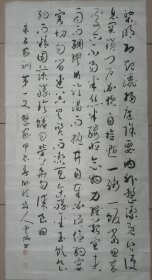 黎明即起洒扫庭除要内外整洁既昏便
息关锁门户必亲自检点一粥一饭当思来
处不易半丝半缕恒念物力维艰宜未
雨而绸缪毋临渴而掘井自奉必须俭约
宴客切勿留连器具质而洁瓦缶胜金玉饮食
约而精园蔬愈珍馐勿营华屋勿谋良田